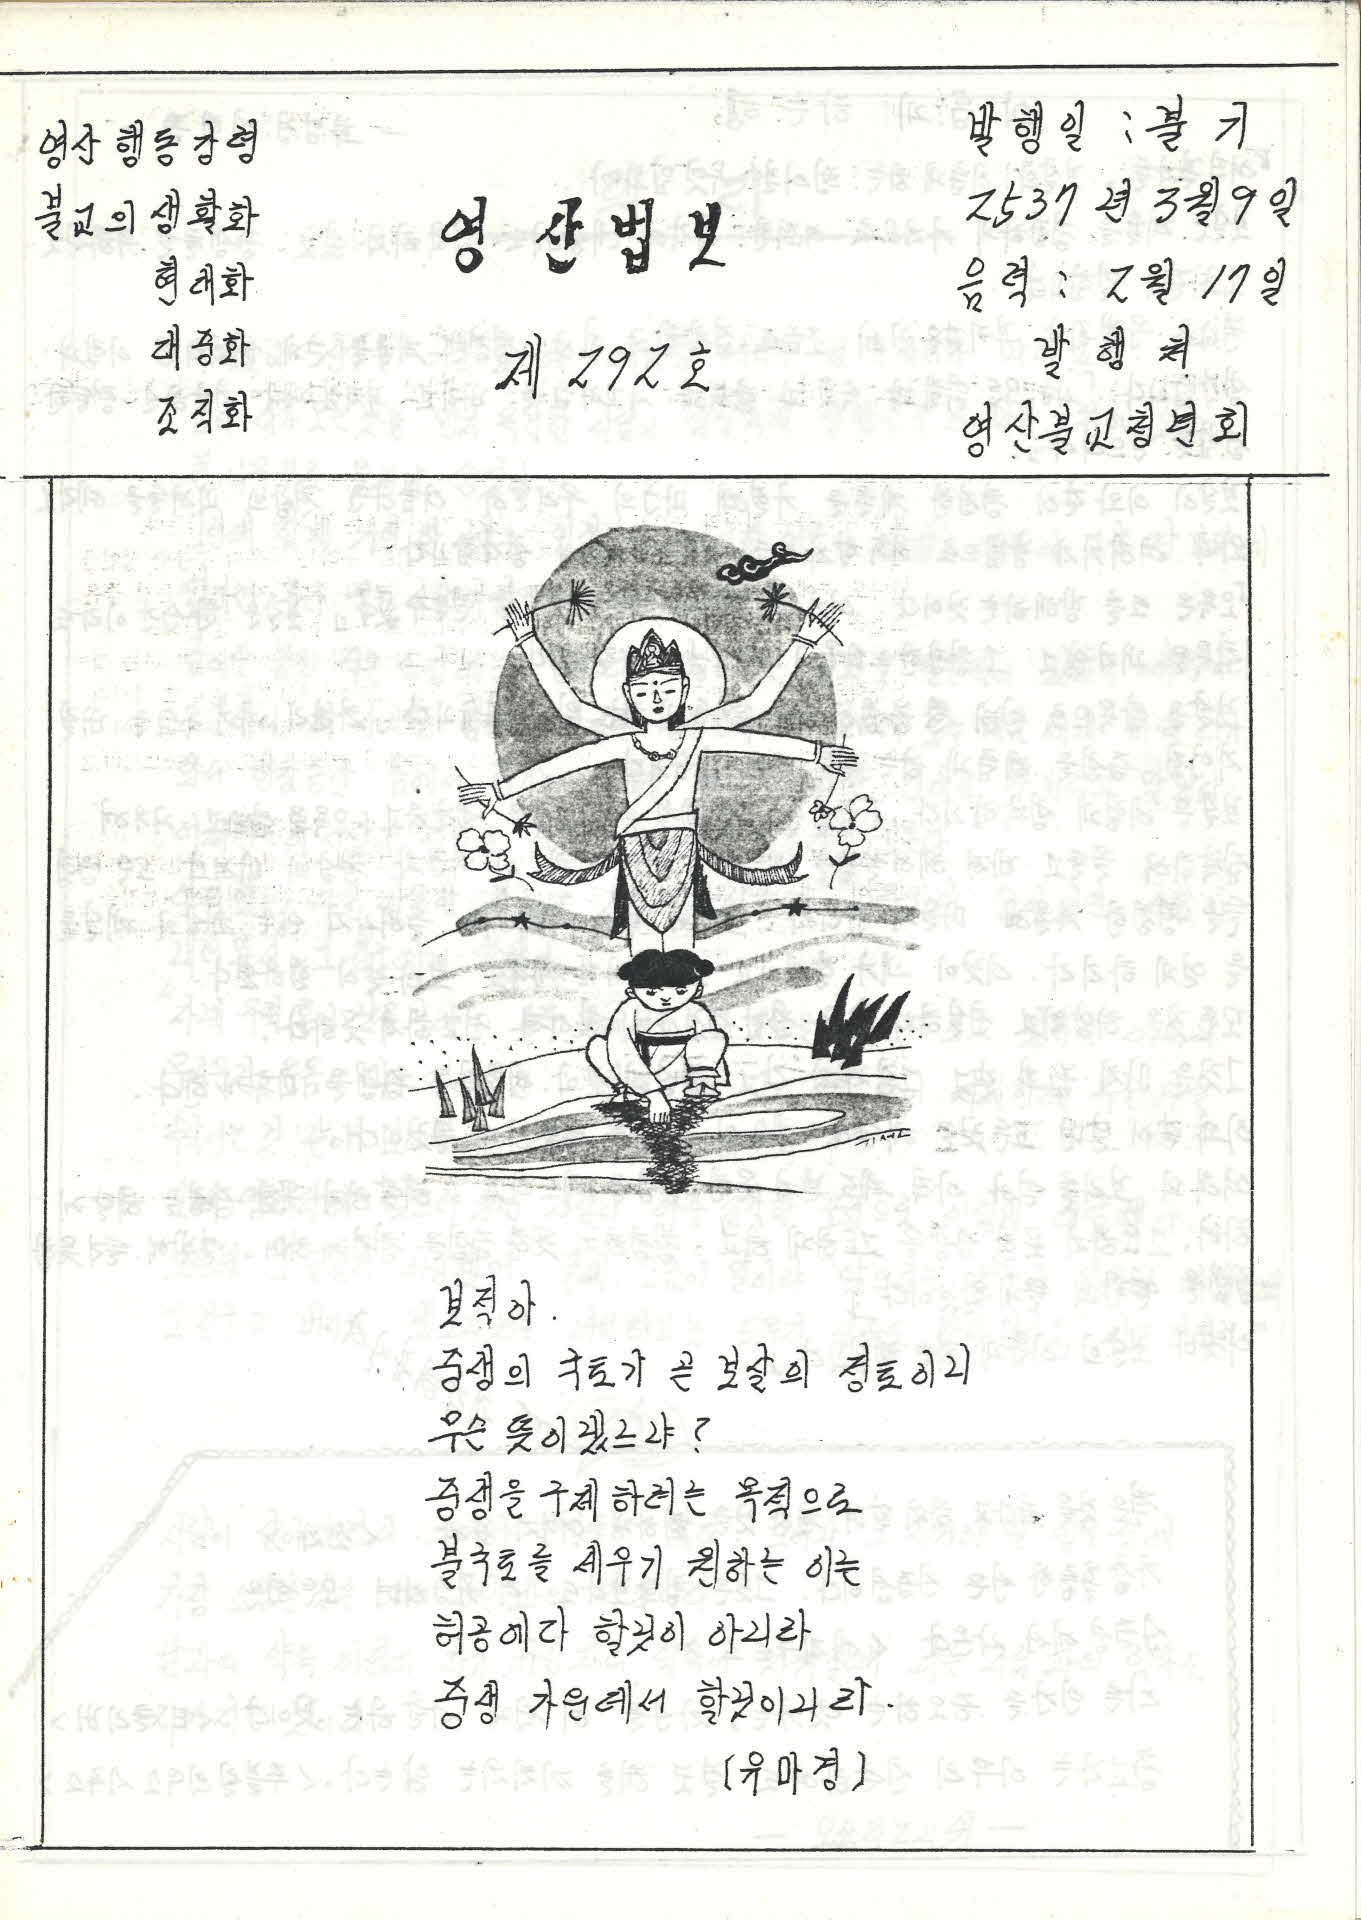 영산행동강령
불교의 생활화
현대화
대중화
조직화
영산법보
제 292호
발행일 : 불기
2537년 3월 9일
음력 : 2월 17일
발행처
영산불교청년회
보적아.
중생의 국토가 곧 보살의 정토이리
무슨 뜻이겠느냐?
중생을 구제하려는 목적으로
불국토를 세우기 원하는 이는
허공에다 할것이 아니라
중생 가운데서 할것이니라.
(유마경)